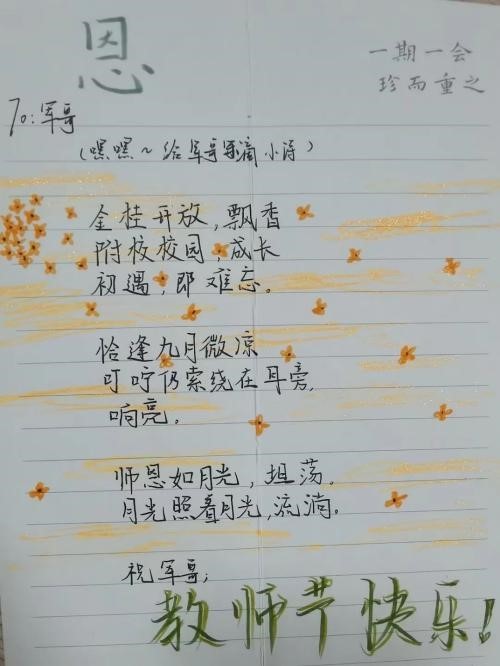 恩
一期一会
珍而重之
To:军哥
(嘿嘿~给军哥写滴小诗)
金桂开放,飘香
附校校园,成长
初遇,即难忘。
恰逢九月微凉
叮咛仍萦绕在耳旁,
响亮。
师恩如月光,坦荡。
月光照着月光,流淌。
祝军哥;
教师节快乐!